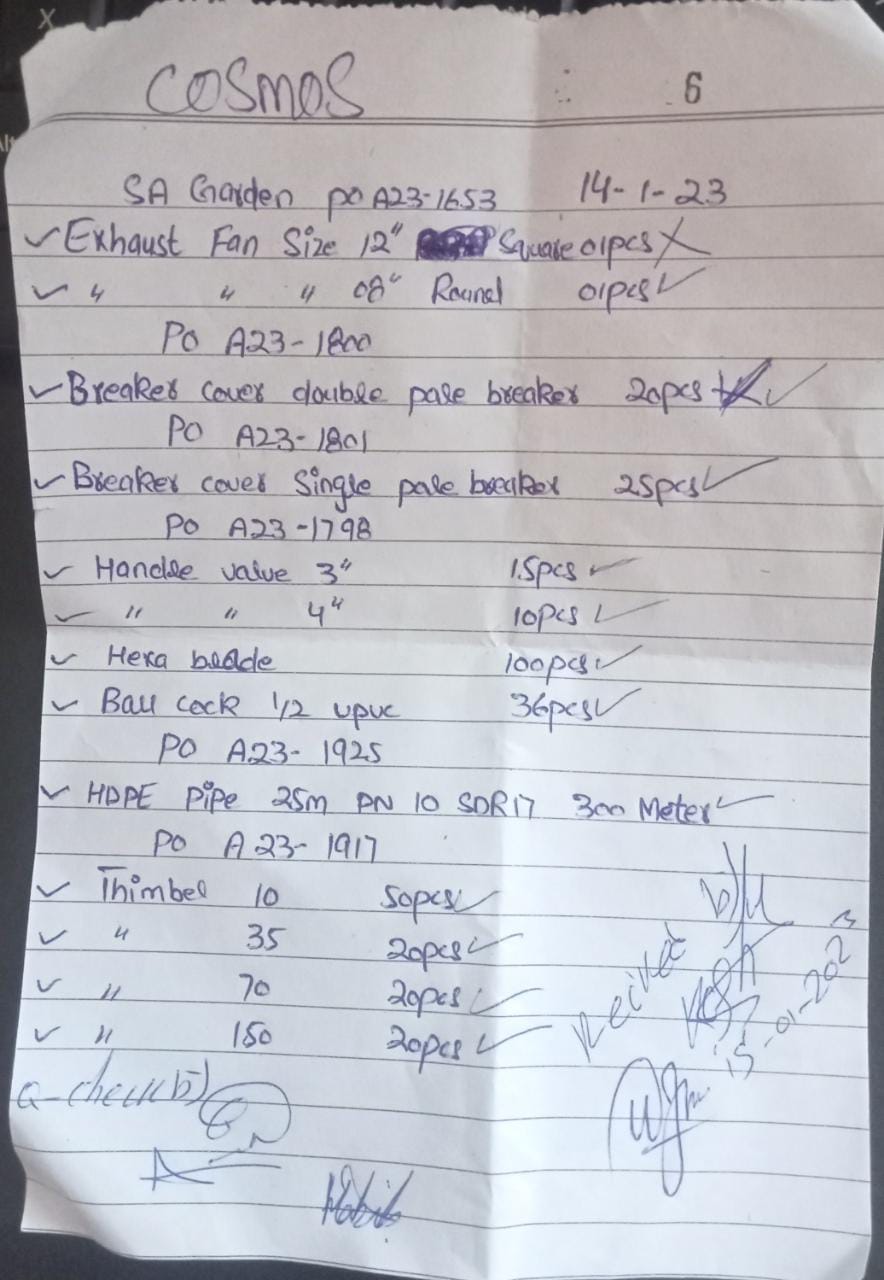 COSMOS 6
SA Garden PO A23-1653 14-1-23
✓ Exhaust Fan Size 12" Square 01pcs X
✓ " " " 08" Round 01pcs ✓
PO A23-1800
✓ Breaker cover double pale breaker 20pcs ✓
PO A23-1801
✓ Breaker cover Single pale breaker 25pcs ✓
PO A23-1798
✓ Handle value 3" 15pcs ✓
✓ " " 4" 10pcs ✓
✓ Hexa beade 100pcs ✓
✓ Ball cock 1/2 upvc 36pcs ✓
PO A23-1925
✓ HDPE Pipe 25m PN 10 SDR17 300 Meter ✓
PO A23-1917
✓ Thimbel 10 50pcs ✓
✓ " 35 20pcs ✓
✓ " 70 20pcs ✓
✓ " 150 20pcs ✓
Recived by
15-01-2023
check by